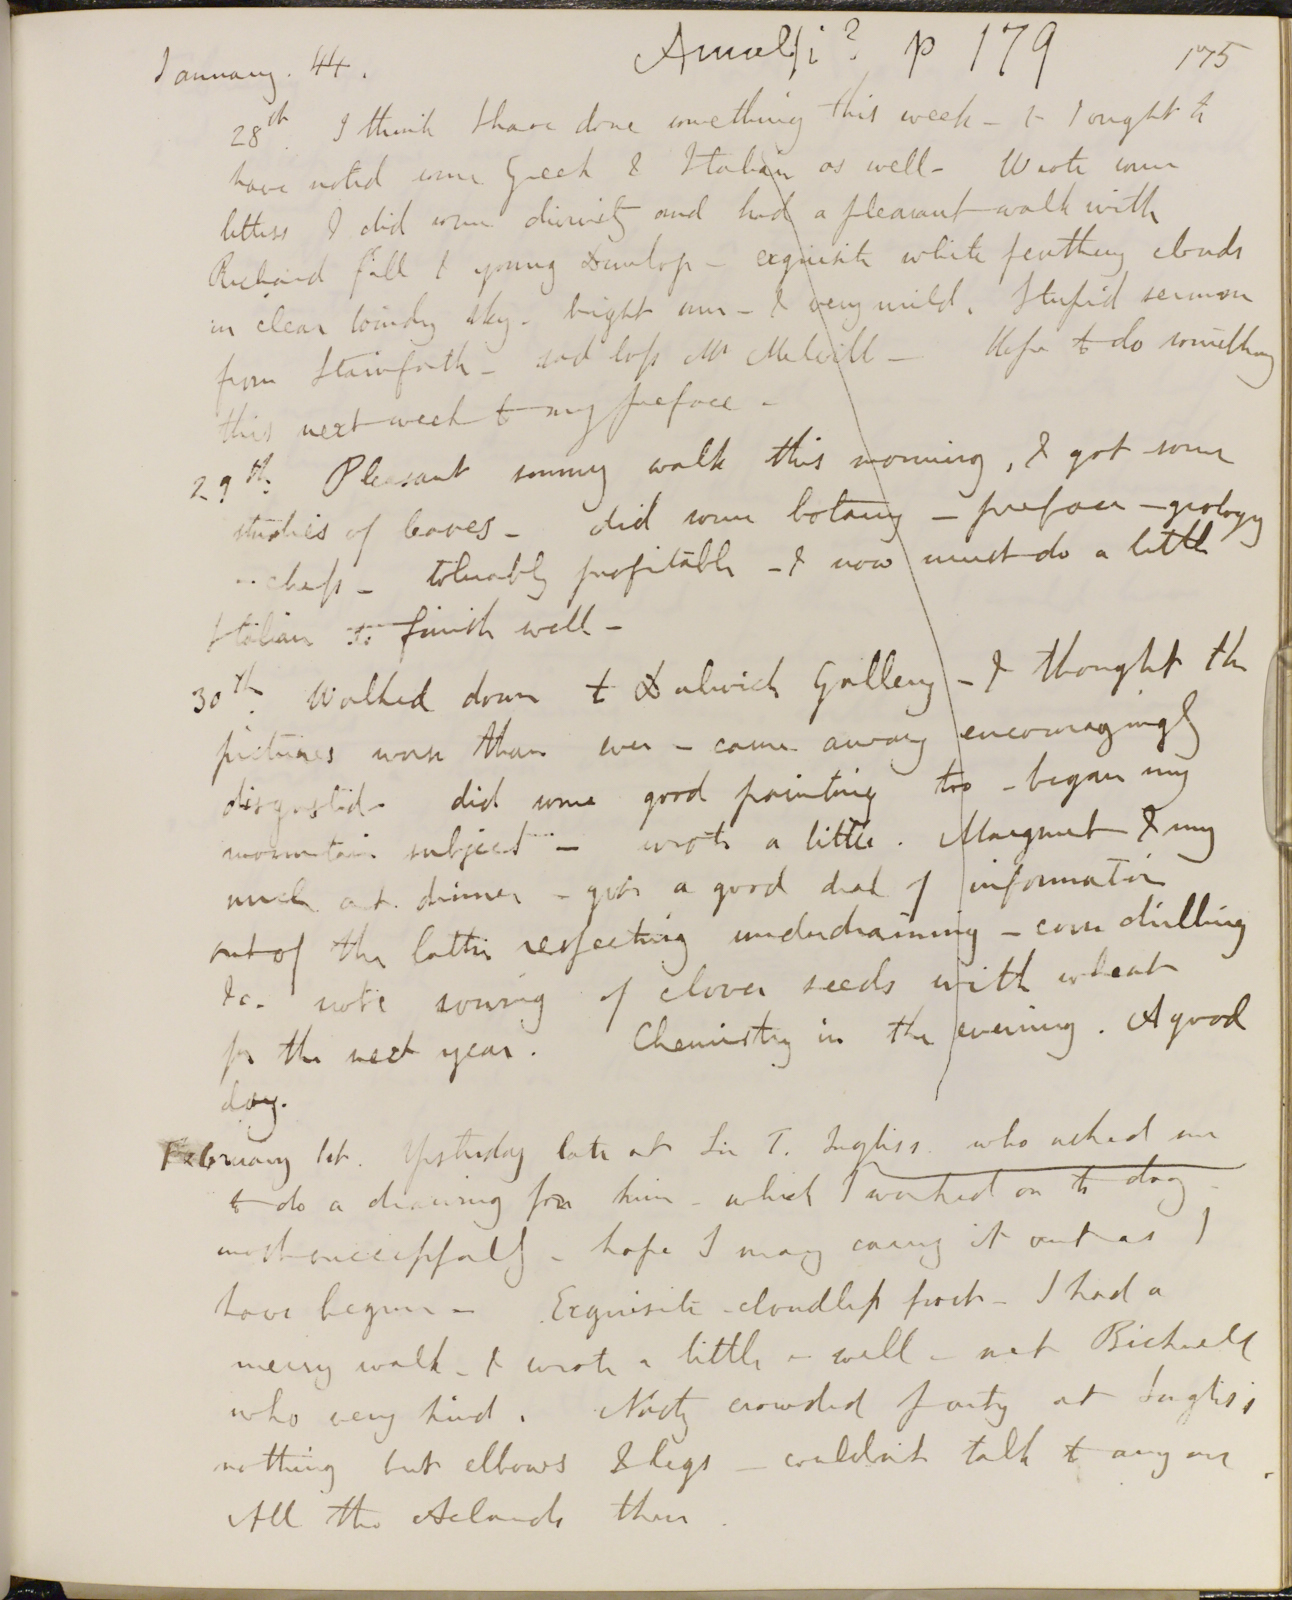 January. 44.
Amalfi? p 179
175
28th. I think I have done something this week - & I ought to
have noted some Greek & Italian as well - Wrote some
letters & did some divinity and had a pleasant walk with
Richard Fall & young Dunlop - exquisite white feathery clouds
in clear windy sky - bright sun - & very mild. Stupid sermon
from Stainforth - sad loss Mr Melvill - Hope to do something
this next week to my preface -
29th. Pleasant sunny walk this morning, & got some
studies of leaves - did some botany - preface - geology
- chess - tolerably profitable - & now must do a little
Italian to finish well -
30th. Walked down to Dulwich Gallery - & thought the
pictures worse than ever - came away encouragingly
disgusted - did some good painting too - began my
mountain subject - wrote a little. Margaret & my
uncle at dinner - got a good deal of information
out of the latter respecting underdraining - corn drilling
&c. note sowing of clover seeds with wheat
for the next year. Chemistry in the evening. A good
day.
February 1st. Yesterday late at Sir T. Ingliss who asked me
to do a drawing for him - which I worked on to day -
most successfully - hope I may carry it out as I
have begun - Exquisite cloudless frost - I had a
merry walk - & wrote a little - well - met Bicknell
who very kind. Nasty crowded party at Inglis's
nothing but elbows & legs - couldn't talk to any one.
All the Aclands there.